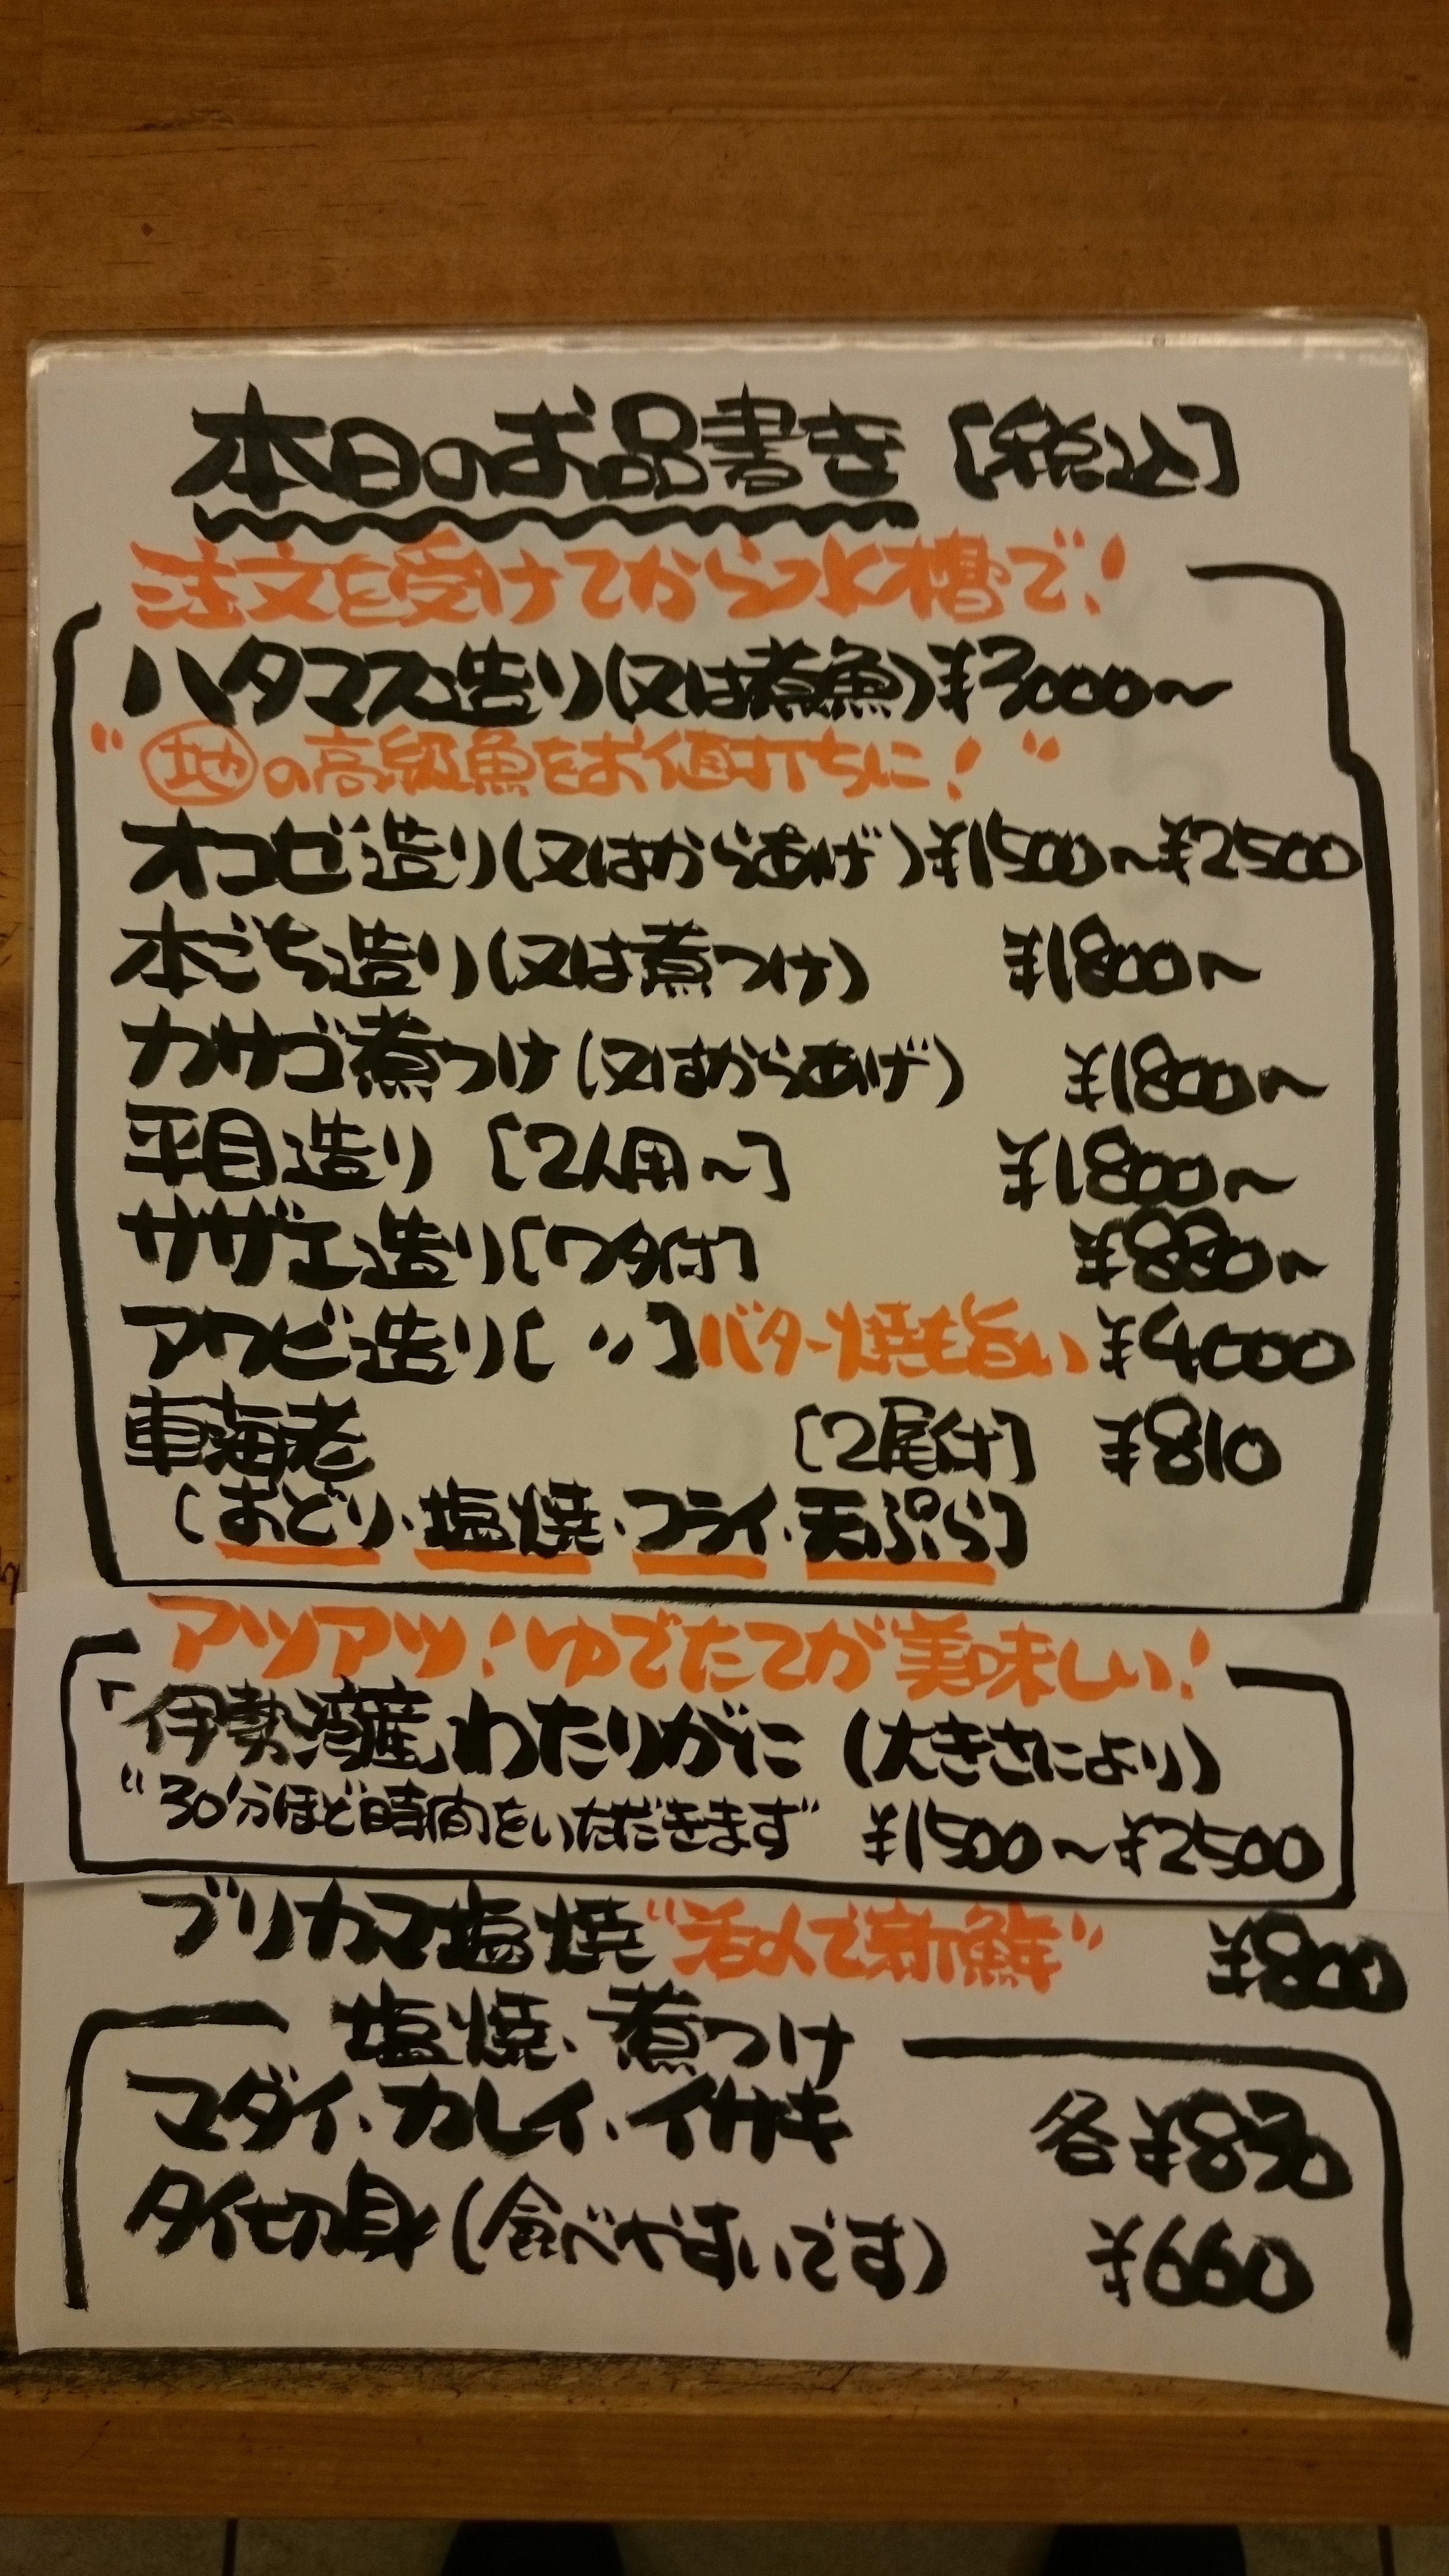 本日のお品書き [税込]
注文を受けてから水槽で!
ハタマス造り(又は煮魚)¥3000〜
"㊏の高級魚をお値打ちに!"
オコゼ造り(又はからあげ)¥1500〜¥2500
本ごち造り(又は煮つけ) ¥1800〜
カサゴ煮つけ(又はからあげ) ¥1800〜
平目造り [2人用〜] ¥1800〜
サザエ造り[ワタ付] ¥880〜
アワビ造り[〃]バター焼も旨い ¥4000
車海老 [2尾付] ¥810
[おどり・塩焼・フライ・天ぷら]
アツアツ!ゆでたてが美味しい!
「伊勢湾産」わたりがに (大きさにより)
"30分ほど時間をいただきます" ¥1500〜¥2500
ブリカマ塩焼"活〆で新鮮" ¥800
塩焼・煮つけ
マダイ・カレイ・イサキ 各¥850
タイ切身(食べやすいです) ¥660